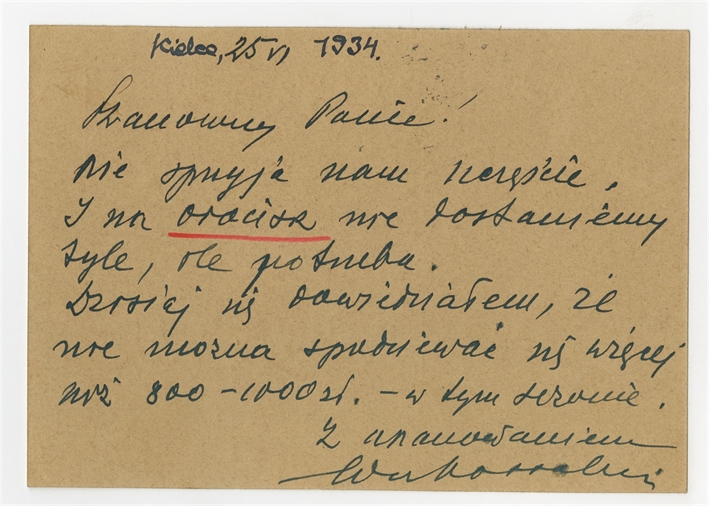 Kielce, 25 VI 1934.
Szanowny Panie!
Nie sprzyja nam szczęście.
I na oracisk nie dostaniemy
tyle, ile potrzeba.
Dzisiaj się dowiedziałem, że
nie można spodziewać się więcej
niż 800 – 1000 zł. – w tym sezonie.
Z szanowaniem